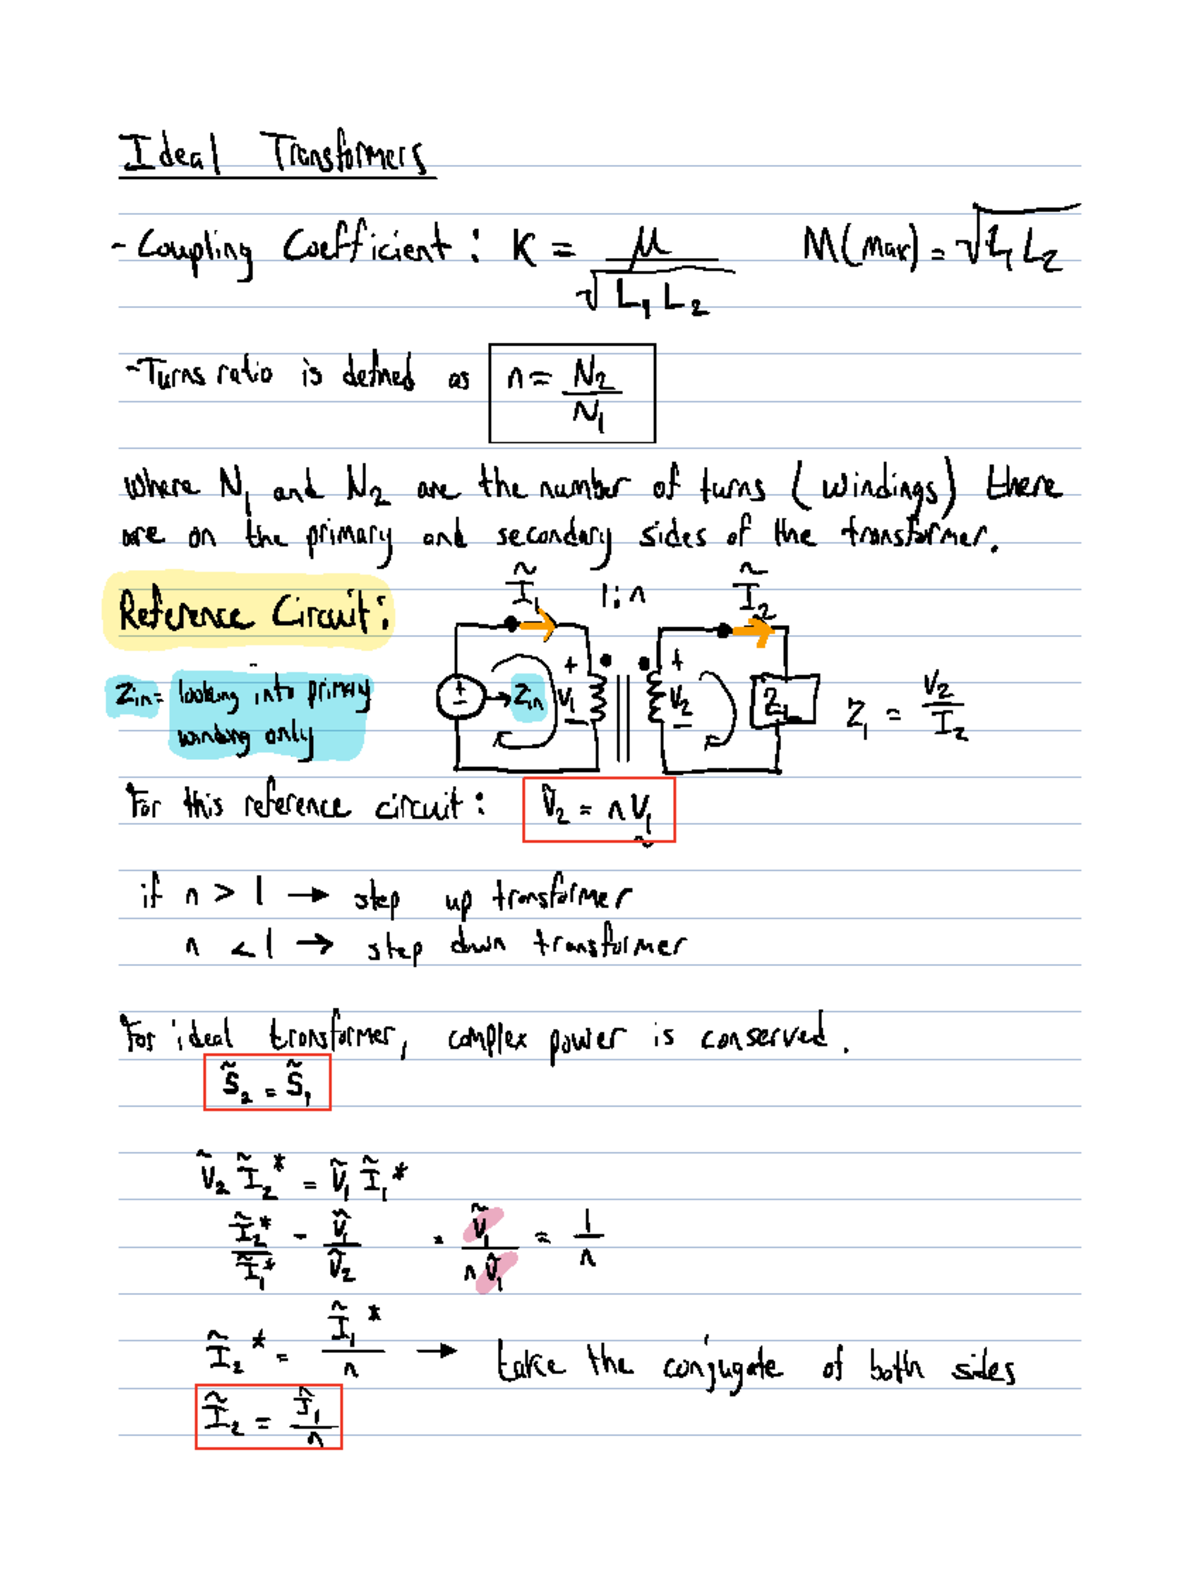 Ideal Transformers
- Coupling Coefficient: K = M / √(L₁ L₂)    M(max) = √(L₁ L₂)
- Turns ratio is defined as n = N₂ / N₁
where N₁ and N₂ are the number of turns (windings) there
are on the primary and secondary sides of the transformer.
Reference Circuit:
Ĩ₁ 1:n Ĩ₂
Zin = looking into primary
winding only
+ − Zin + V₁ − + V₂ − Z_L
Z_L = V₂ / I₂
For this reference circuit: Ṽ₂ = nṼ₁
if n > 1 → step up transformer
n < 1 → step down transformer
For ideal transformer, complex power is conserved.
S̃₂ = S̃₁
Ṽ₂ Ĩ₂* = Ṽ₁ Ĩ₁*
Ĩ₂* / Ĩ₁* = Ṽ₁ / Ṽ₂ = Ṽ₁ / nṼ₁ = 1 / n
Ĩ₂* = Ĩ₁* / n → take the conjugate of both sides
Ĩ₂ = Ĩ₁ / n